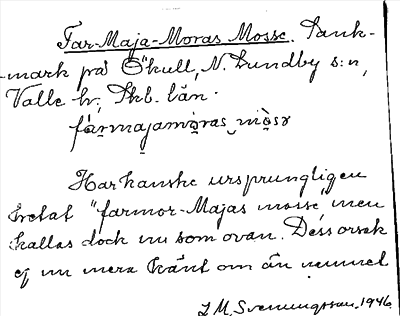 Far-Maja-Moras Mosse. Sank-
mark på Ökull, N. Lundby s:n,
Valle hr, Skb. län.
fármajamoras mòsə
Har kanske ursprungligen
hetat "farmor-Majas mosse" men
kallas dock nu som ovan. Dess orsak
ej nu mera känt om än nemnet
I. M. Svenungsson. 1946.